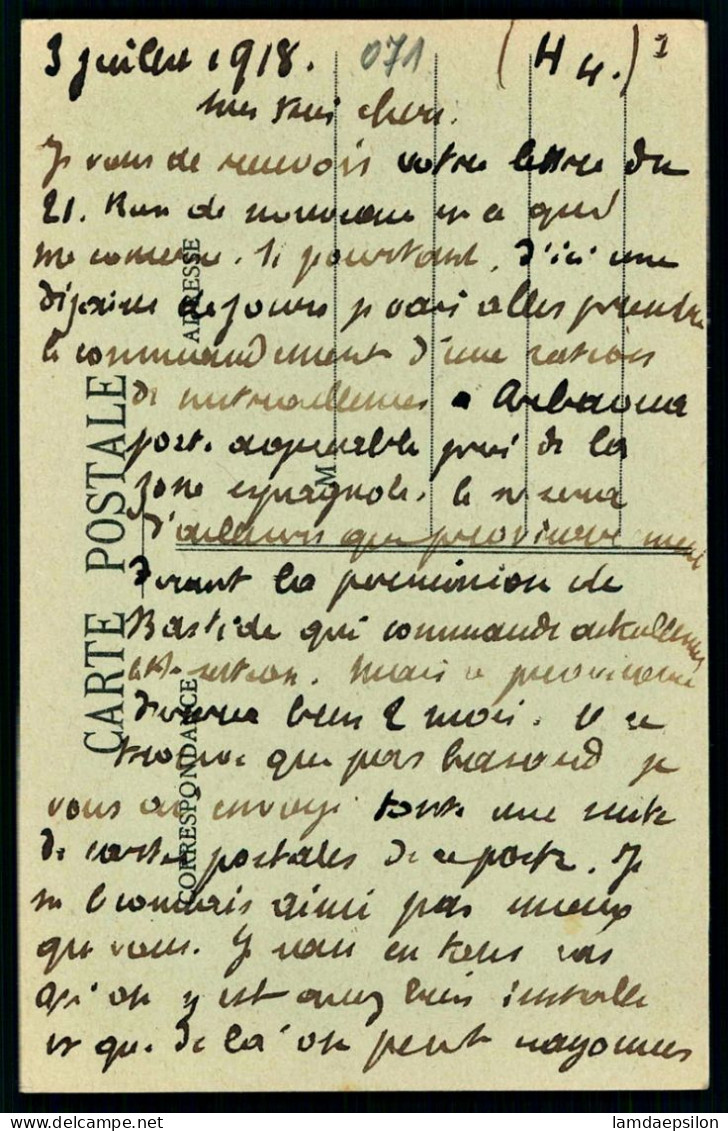 3 juillet 1918. 071 (H 4.) 1
mes biens chers.
Je viens de recevoir votre lettre du
21. Rien de nouveau en ce qui
me concerne. Si pourtant, d'ici une
dizaine de jours je vais aller prendre
le commandement d'une section
de mitrailleuses à Arbaoua
poste agréable près de la
zone espagnole. Ce ne sera
d'ailleurs que provisoirement
durant la permission de
Bastide qui commande actuellement
cette section. Mais ce provisoire
durera bien 2 mois. Il se
trouve que par hasard je
vous ai envoyé toute une suite
de cartes postales de ce poste. Je
ne le connais ainsi pas mieux
que vous. Je sais en tous cas
qu'on y est assez bien installé
et que de là on peut rayonner
CARTE POSTALE
CORRESPONDANCE
ADRESSE
M
lamdaepsilon